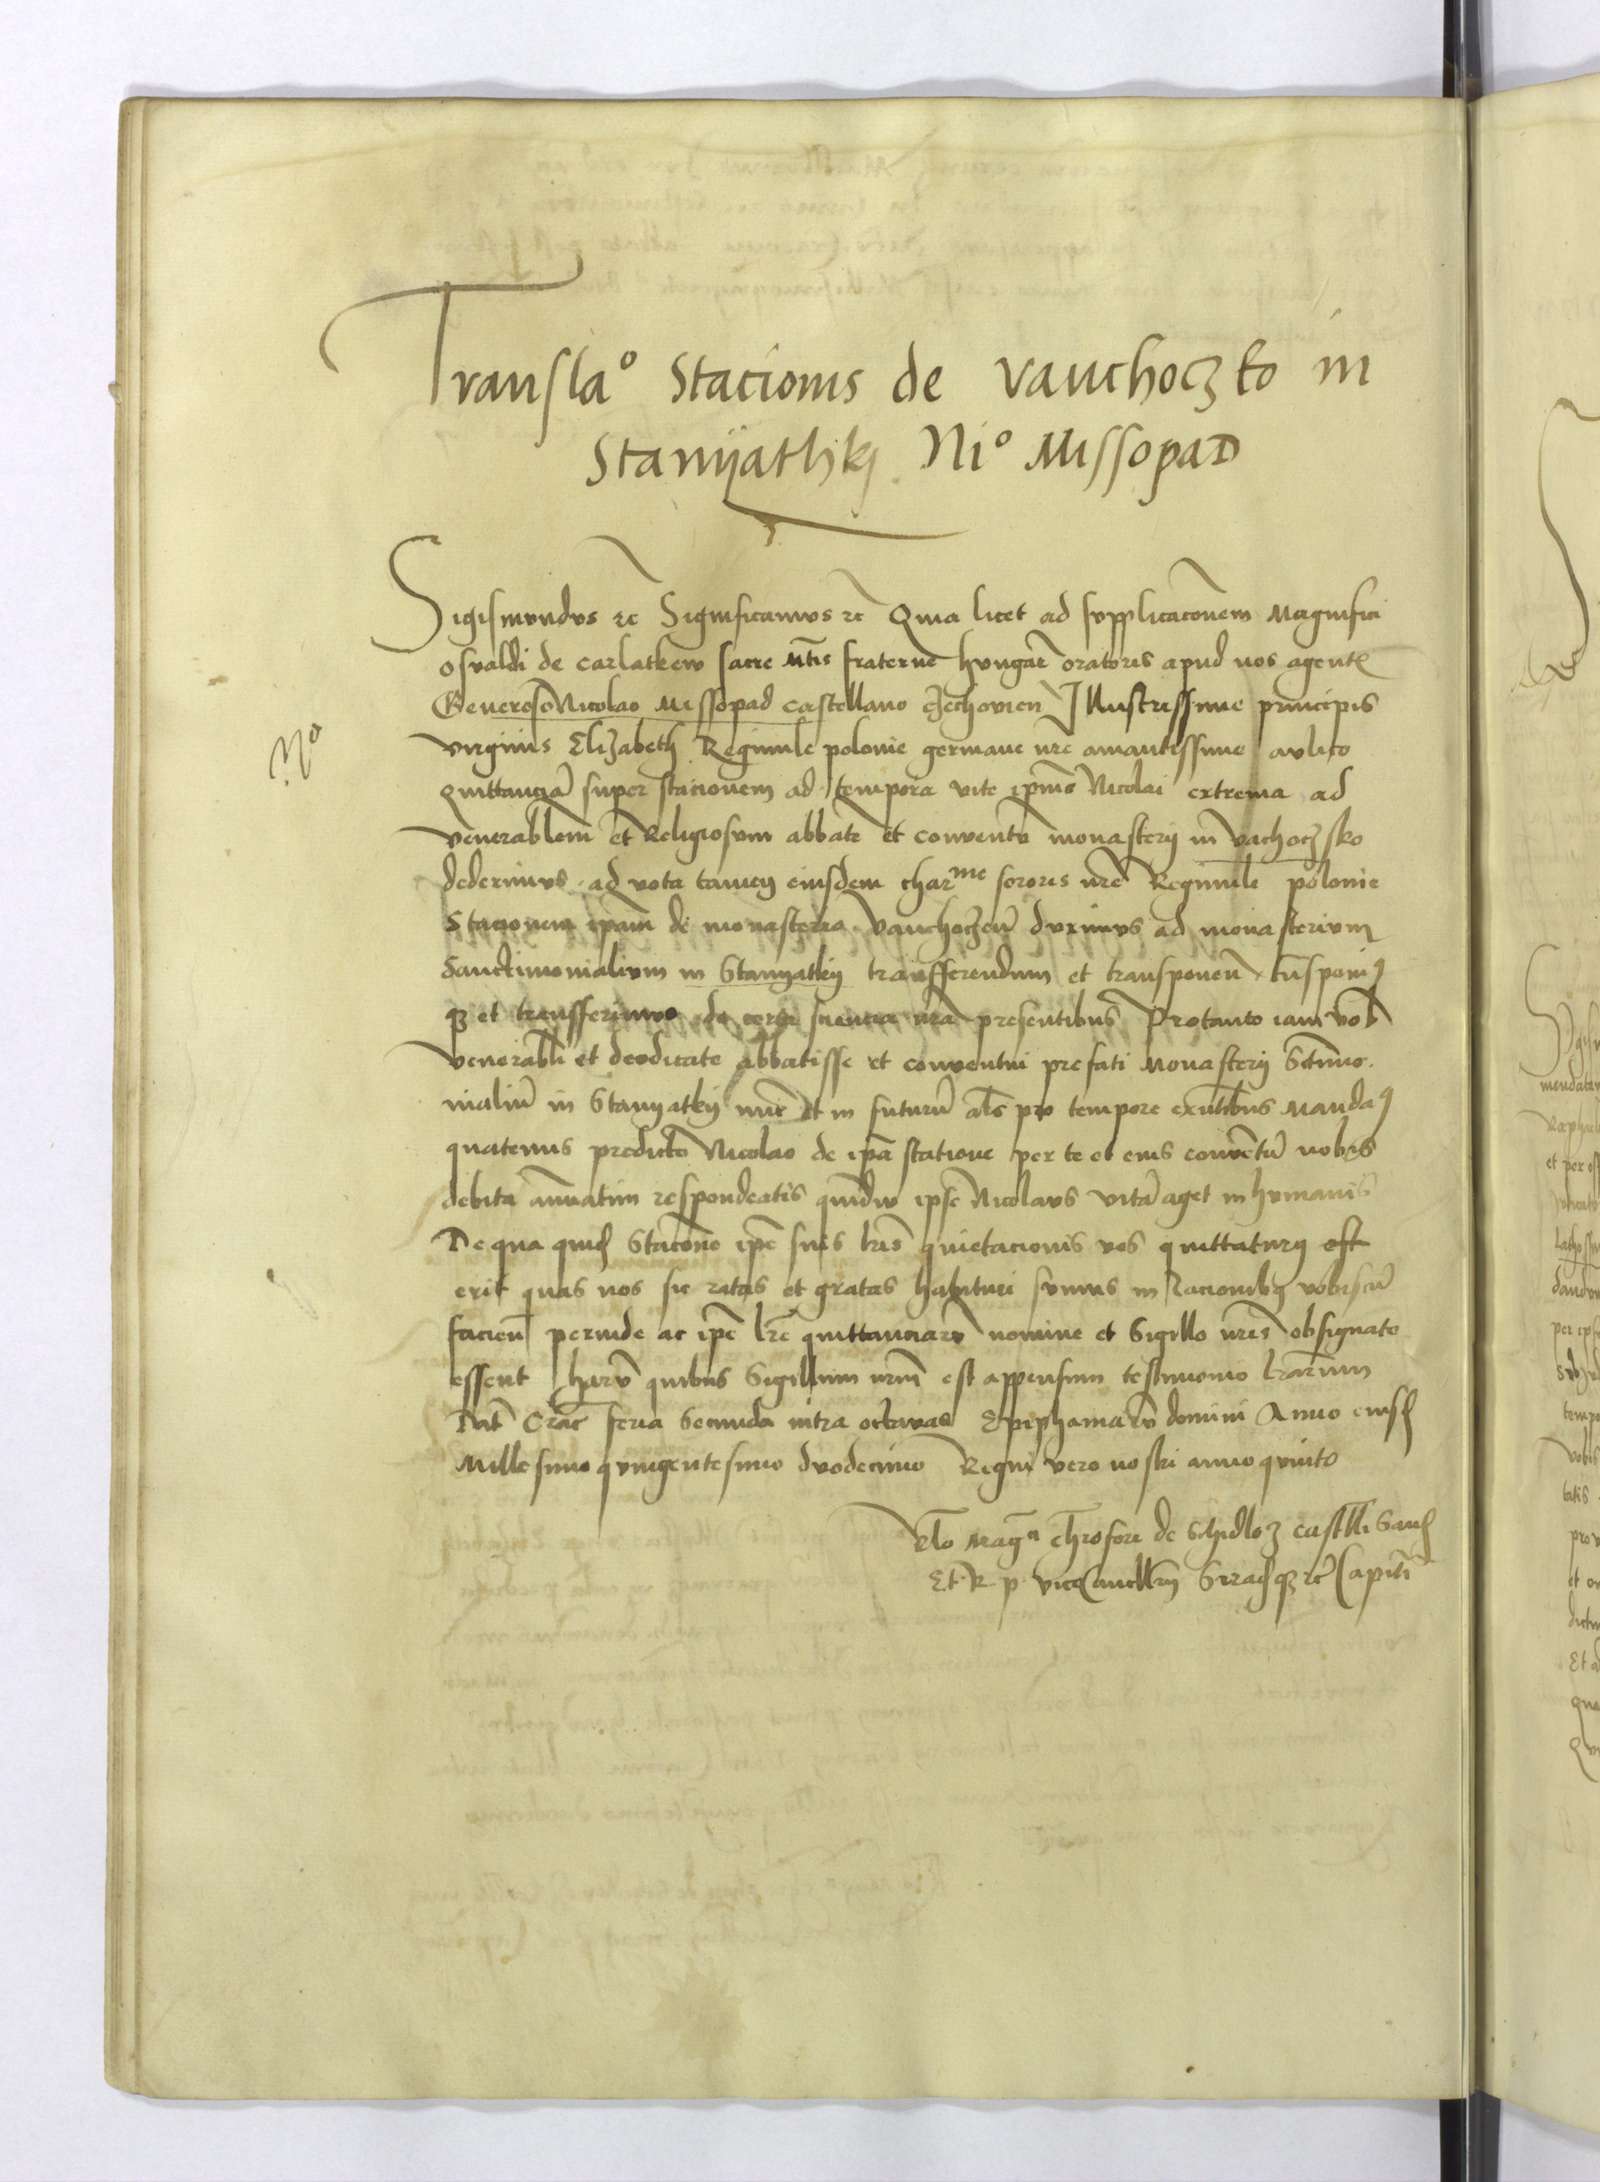 Transla° Stacionis de Vauchoczko in
Stanyathky Ni° Missopad
Sigismundus etc Significamus etc Quia licet ad supplicacōnem Magnifici
Osvaldi de Carlatkew sacre Mtis fraterne Hungarie oratoris apud nos agentis
Generoso Nicolao Missopad Castellano Zechovien Illustrissime principis
virginis Elizabeth Regimule polonie germane nre amantissime aulico
quittanciā super stacionem ad tempora vite ipsius Nicolai extrema ad
venerablem et Religiosum abbate et conventū monastery in Vachoczsko
dederimus ad vota tamen eiusdem charme sororis nre Regimule polonie
Stacionem ipam de monasterio Vauchoczen duximus ad monasterium
Sanctimonialium in Stanyatky transfferendum et transponen transponi9
qz et transferimus de certa sciencia nra presentibus Protanto iam vob
venerabli et deodicate abbatisse et conventui prefati Monastery Sctimo
nialiū in Stanyatky nūc et in futurū als pro tempore exntibus Manda9
quatenus predicto Nicolao de ipa statione per te et eius conventū nobis
debita annuatim respondeatis quādiu ipse Nicolaus vitā aget in humanis
De qua quid Stacōne ipe suis lris quietacionis vos quittaturus est
erit quas nos sic ratas et gratas habituri sumus in racionibus vobiscū
facien perinde ac ipe lre quittanciarū nomine et Sigillo nris obsignate
essent harū quibus Sigillum nrum est appensum testimonio lrarum
Dat Crac feria Secunda intra octavas Epiphaniarū domini Anno eiusd
Millesimo quingentesimo duodecimo Regni vero nostri anno quinto
Rlo Mag^ci Chrosori de Schidlow Castelli Sand
Et R p vicecancellary Siradqz etc Capitī
N°